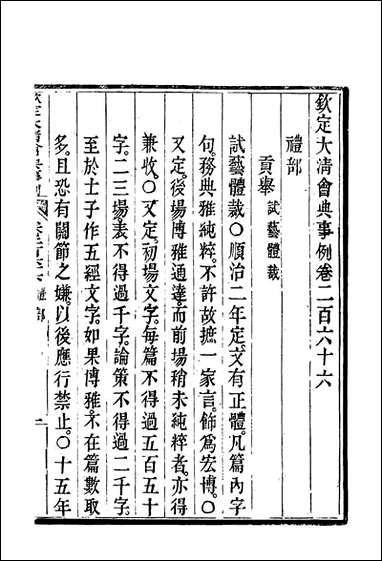 欽定大清會典事例卷二百六十六
禮部
貢舉試藝體裁
試藝體裁○順治二年定文有正體凡篇內字
句務典雅純粹不許故摭一家言飾爲宏博○
又定後場博雅通達而前場稍未純粹者亦得
兼收○又定初場文字每篇不得過五百五十
字二三場表不得過千字論策不得過二千字
至於士子作五經文字如果博雅不在篇數取
多且恐有關節之嫌以後應行禁止○十五年